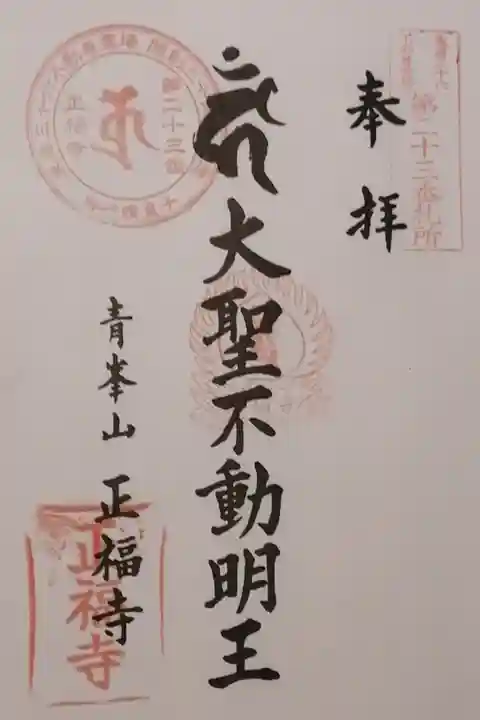 第二十三番札所
奉拝
大聖不動明王
青峯山 正福寺
正福寺
第二十三番
正福寺